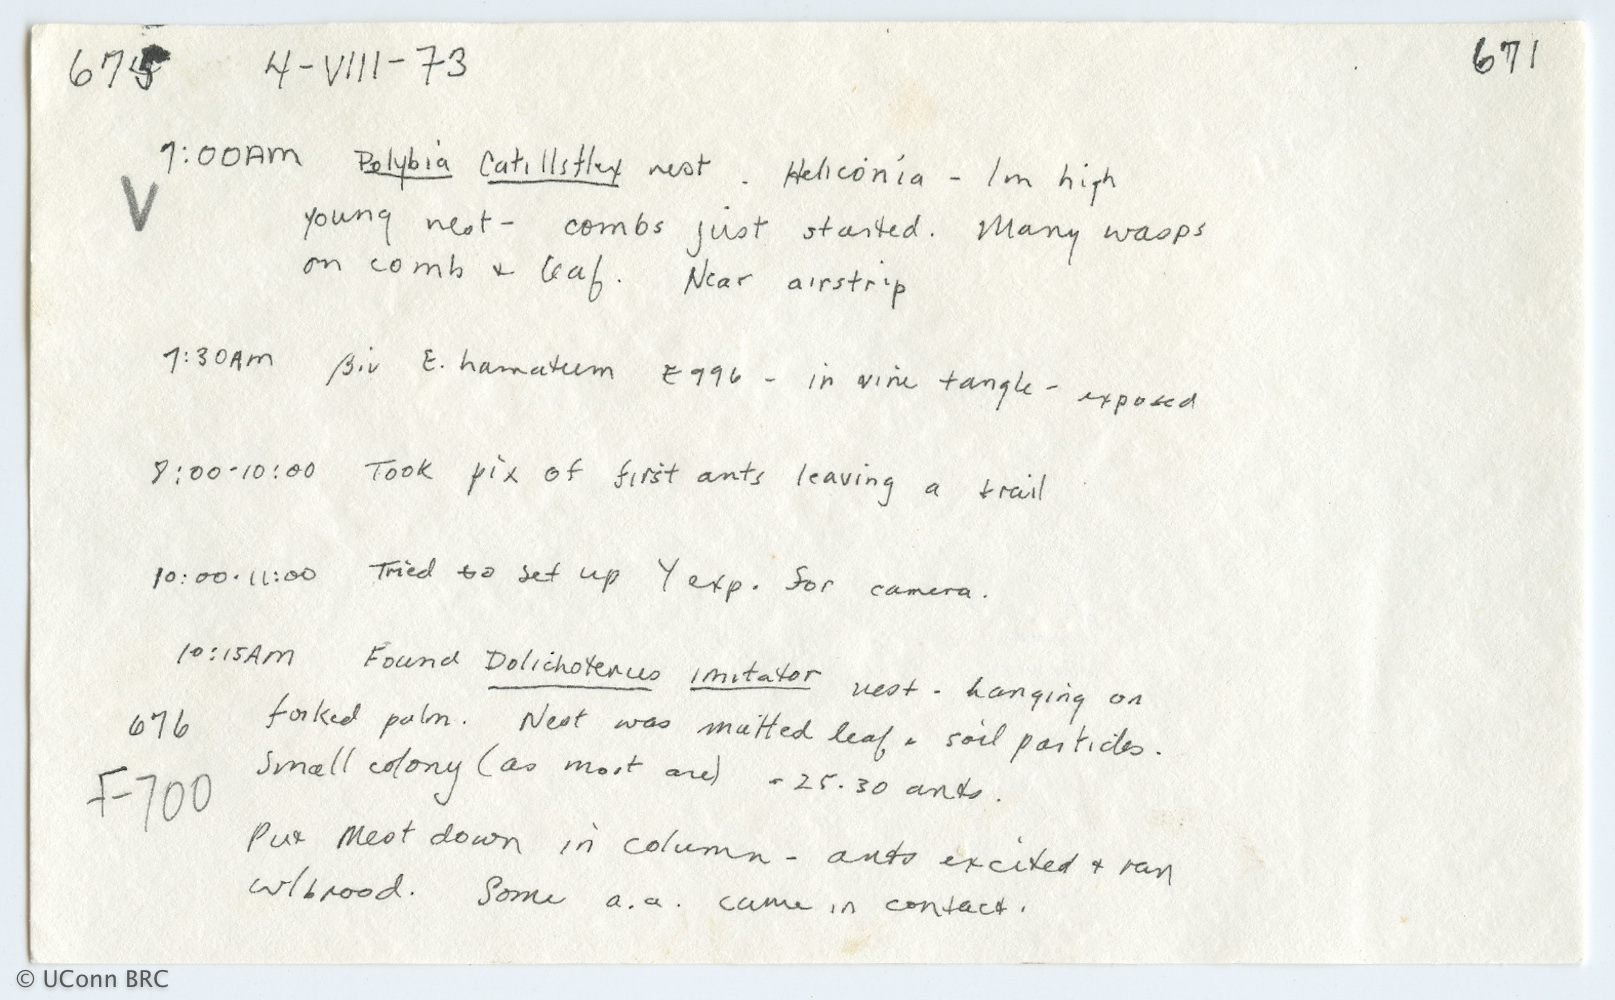 675 4-VIII-73 671
7:00AM Polybia Catillsflex nest. Heliconia - 1m high
V
young nest - combs just started. Many wasps
on comb & leaf. Near airstrip
7:30AM Biv E. hamatum E996 - in vine tangle - exposed
8:00-10:00 Took pix of first ants leaving a trail
10:00-11:00 Tried to set up Y exp. for camera.
10:15AM Found Dolichoterus imitator nest - hanging on
676 forked palm. Nest was matted leaf & soil particles.
small colony (as most are) - 25-30 ants.
F-700
Put Nest down in column - ants excited & ran
w/brood. Some a.a. came in contact.
© UConn BRC